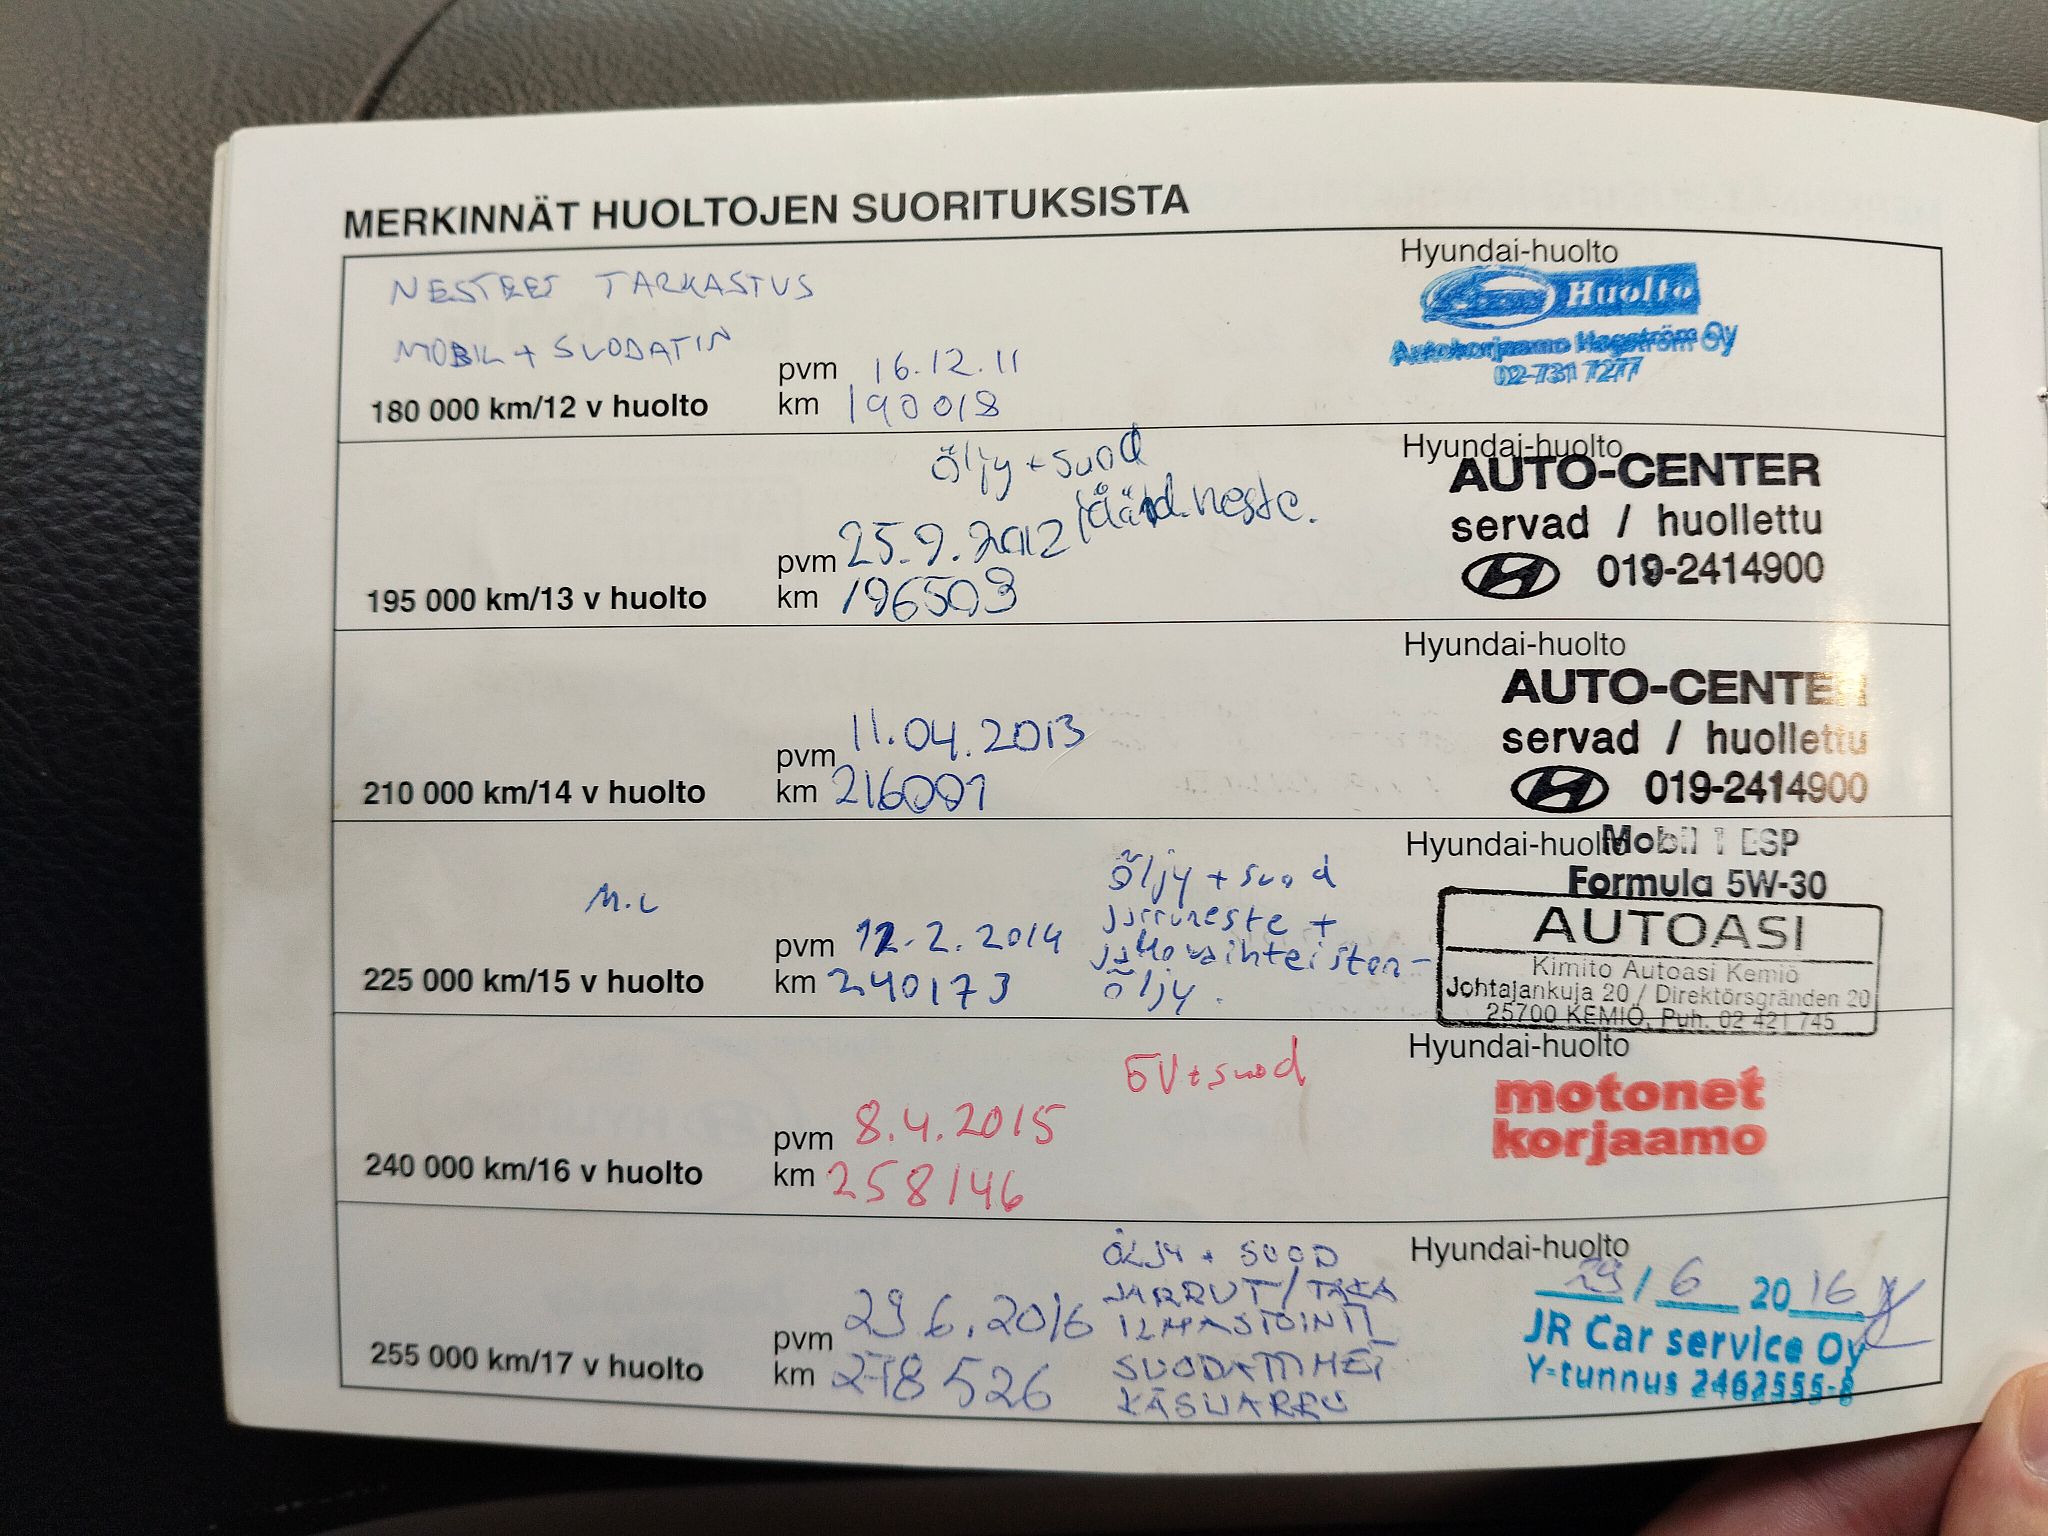 MERKINNÄT HUOLTOJEN SUORITUKSISTA
Hyundai-huolto
NESTEET TARKASTUS
MOBIL + SUODATIN
Huolto
Autokorjaamo Hagström Oy
02-731 7277
pvm 16.12.11
180 000 km/12 v huolto km 190018
Hyundai-huolto
öljy + suod
AUTO-CENTER
servad / huollettu
019-2414900
neste.
pvm 25.9.2012
195 000 km/13 v huolto km 196503
Hyundai-huolto
AUTO-CENTER
servad / huollettu
019-2414900
pvm 11.04.2013
210 000 km/14 v huolto km 216001
Hyundai-huolto
Mobil 1 ESP
Formula 5W-30
AUTOASI
Kimito Autoasi Kemiö
Johtajankuja 20 / Direktörsgränden 20
25700 KEMIÖ, Puh. 02 421 745
M.L
öljy + suod
jarruneste +
jakovaihteisten-
öljy.
pvm 12.2.2014
225 000 km/15 v huolto km 240173
Hyundai-huolto
motonet
korjaamo
ÖV + suod
pvm 8.4.2015
240 000 km/16 v huolto km 258146
Hyundai-huolto
29 / 6 2016
JR Car service Oy
Y-tunnus 2462555-8
ÖLJY + SUOD
JARRUT/TAKA
ILMASTOINTI
SUODATTIMET
KÄSIJARRU
pvm 29.6.2016
255 000 km/17 v huolto km 278526